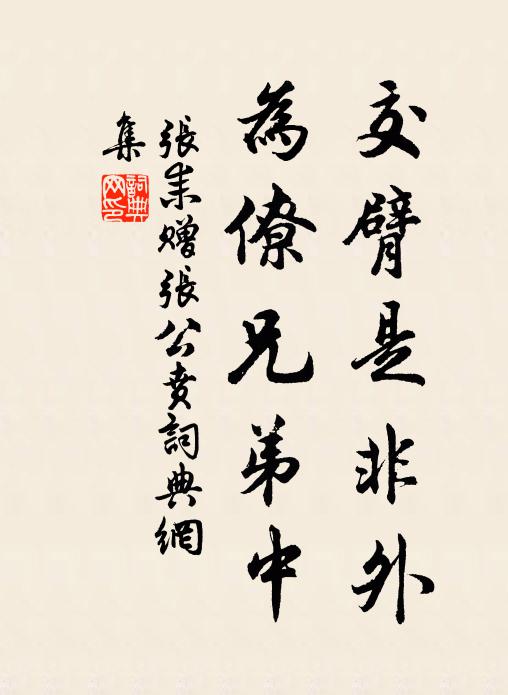 交臂是非外
為僚兄弟中
張耒贈張公賁詞典網
集
詞典網印